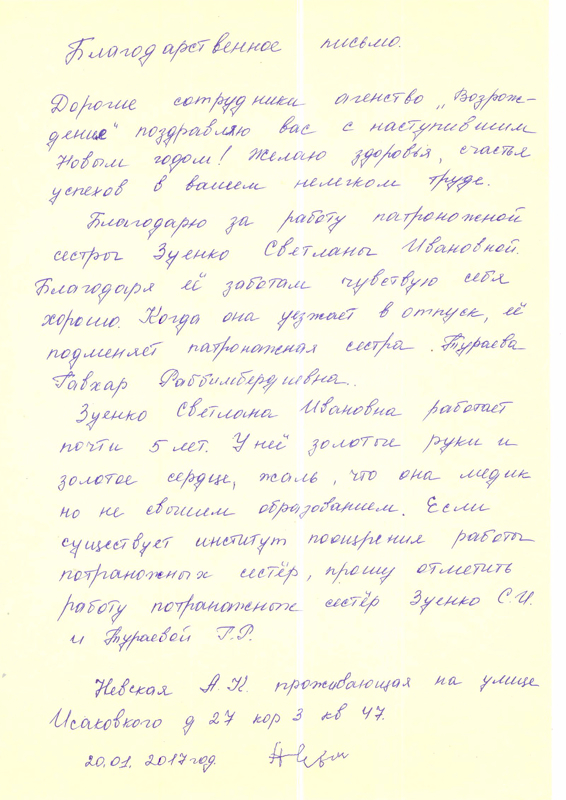 Благодарственное письмо.
Дорогие сотрудники агенство „Возрож-
дение“ поздравляю вас с наступившим
Новым годом! Желаю здоровья, счастья
успехов в вашем нелегком труде.
Благодарю за работу патроножной
сестры Зуенко Светланы Ивановной.
Благодаря её заботам чувствую себя
хорошо. Когда она уезжает в отпуск, её
подменяет патроножная сестра Тураева
Гавхар Раббимбердиевна..
Зуенко Светлана Ивановна работает
почти 5 лет. У ней золотые руки и
золотое сердце, жаль, что она медик
но не свышем образованием. Если
существует институт поощрения работы
потраножных сестёр, прошу отметить
работу потраножных сестёр Зуенко С.И.
и Тураевой Г.Р.
Невская А.К. проживающая на улице
Исаковкого д 27 кор 3 кв 47.
20.01. 2017 год.